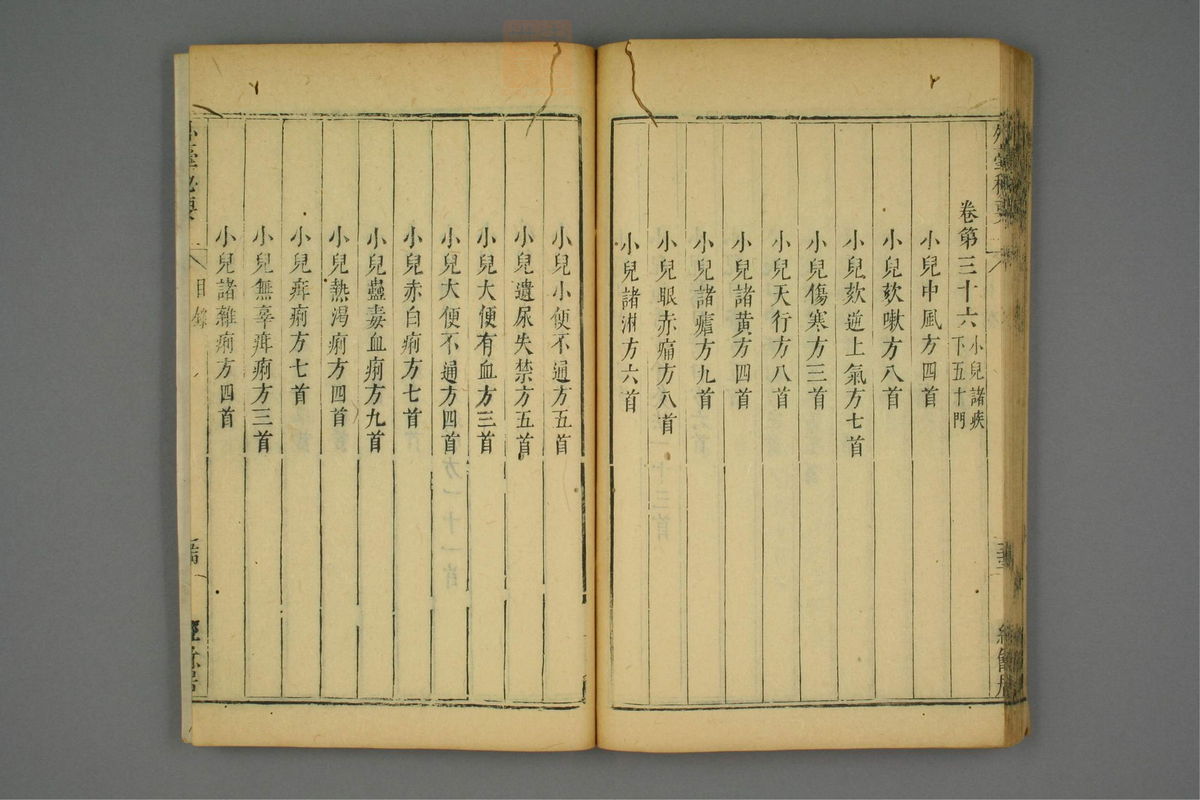 卷第三十六 小兒諸疾下五十門
小兒中風方四首
小兒欬嗽方八首
小兒欬逆上氣方七首
小兒傷寒方三首
小兒天行方八首
小兒諸黃方四首
小兒諸瘧方九首
小兒眼赤痛方八首
小兒諸淋方六首
小兒小便不通方五首
小兒遺尿失禁方五首
小兒大便有血方三首
小兒大便不通方四首
小兒赤白痢方七首
小兒蠱毒血痢方九首
小兒熱渴痢方四首
小兒疳痢方七首
小兒無辜疳痢方三首
小兒諸雜痢方四首
目錄